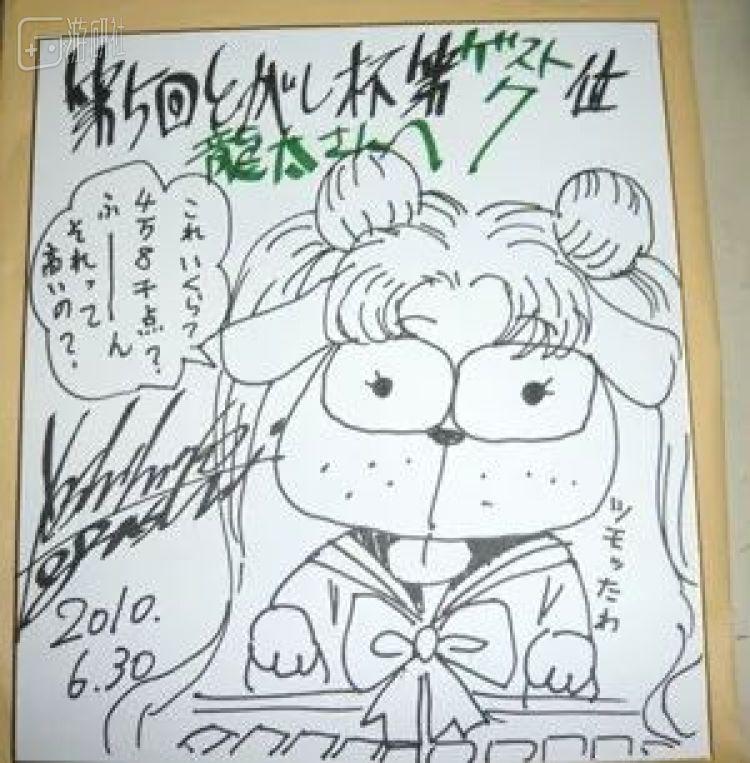 游研社
第5回とがし杯第 位
ゲスト
龍太さんへ
これいくら?
4万8千点?
ふーーん
それって
高いの?
ツモったわ
Yoshihiro
Togashi
2010.
6.30